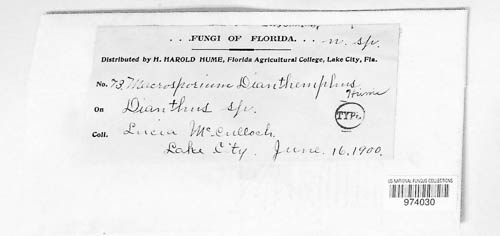 . . .FUNGI OF FLORIDA. . . n. sp.
Distributed by H. HAROLD HUME, Florida Agricultural College, Lake City, Fla.
No. 73. Macrosporium Dianthemphus
Hume
On Dianthus sp.
TYPE
Coll. Lucia McCulloch
Lake City. June. 16, 1900.
US NATIONAL FUNGUS COLLECTIONS
974030